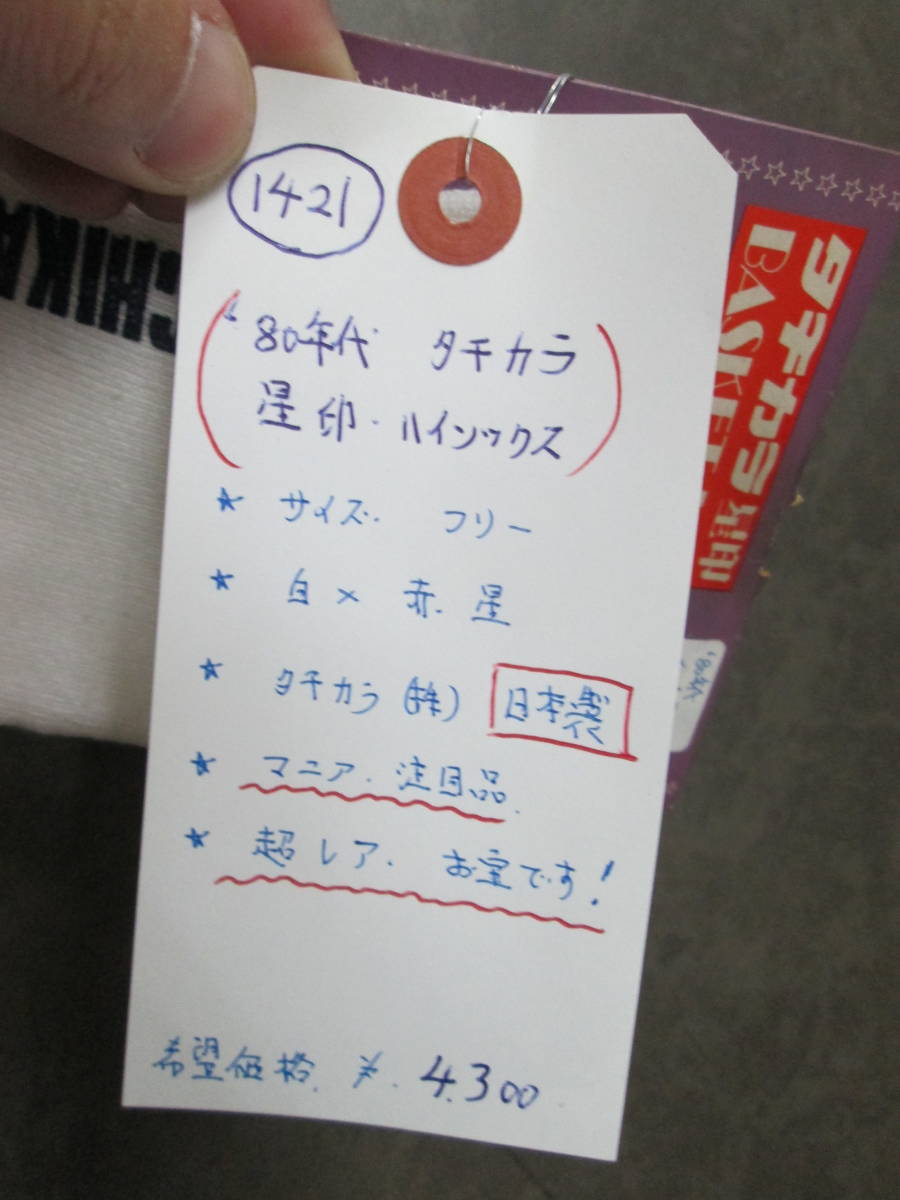 1421
'80年代 タチカラ
星印・ハイソックス
★ サイズ. フリー
★ 白 × 赤. 星
★ タチカラ(株) 日本製
★ マニア. 注目品.
★ 超レア. お宝です!
希望価格. ¥. 4.300
タチカラ星印
BASKET
CHIKA